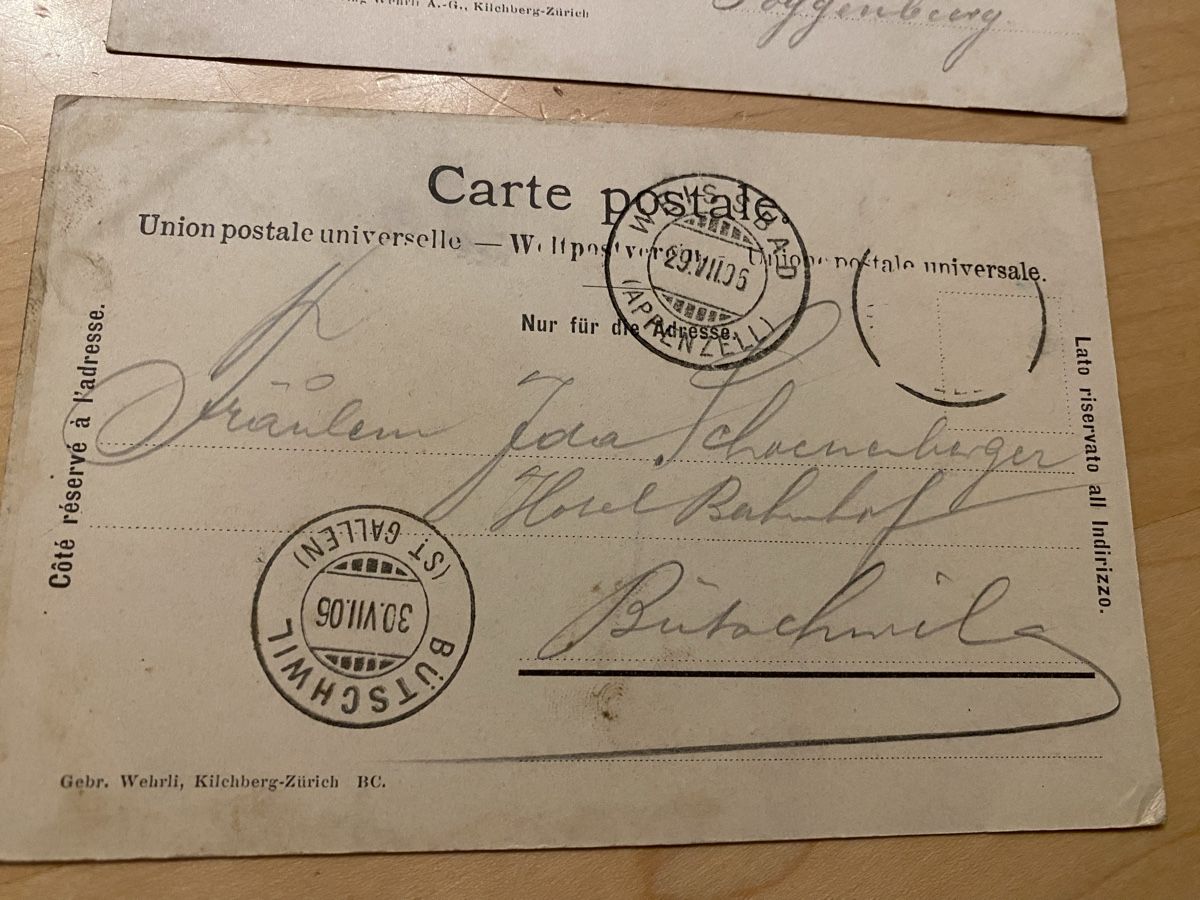 Wehrli A.-G., Kilchberg-Zürich
Toggenburg
Carte postale.
Union postale universelle — Weltpostverein — Unione postale universale.
WEISSBAD
29.VII.06
(APPENZELL)
Nur für die Adresse.
Côté réservé à l'adresse.
Lato riservato all Indirizzo.
Fräulein Ida Schoenenberger
Hotel Bahnhof
Bütschwil
(ST. GALLEN)
30.VII.06
BÜTSCHWIL
Gebr. Wehrli, Kilchberg-Zürich BC.